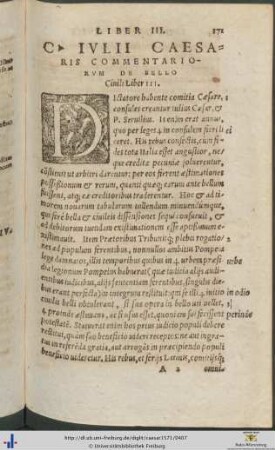 LIBER III. 171
C. IVLII CAESA-
RIS COMMENTARIO-
RVM DE BELLO
Ciuili Liber III.
DIctatore habente comitia Cæsare,
consules creantur Iulius Cæsar, &
P. Seruilius. Is enim erat annus,
quo per leges ei consulem fieri li-
ceret. His rebus confectis, cum fi-
des tota Italia esset angustior, ne-
que creditæ pecuniæ soluerentur,
constituit vt arbitri darentur: per eos fierent æstimationes
possessionum & rerum, quanti quæq; earum ante bellum
fuissent, atq; eæ creditoribus traderentur. Hoc & ad ti-
morem nouarum tabularum tollendum minuendumque,
qui ferè bella & ciuileis dissensiones sequi consueuit, &
ad debitorum tuendam existimationem esse aptissimum e-
xistimauit. Item Prætoribus Tribunisq; plebis rogatio-
nes ad populum ferentibus, nonnullos ambitus Pompeia
lege damnatos, illis temporibus quibus in vrbem præsi-
dia legionum Pompeius habuerat quæ iudicia aliis audi-
entibus iudicibus, aliis sententiam ferentibus, singulis die-
bus erant perfecta in integrum restituit: qui se illi initio
ciuilis belli obtulerant, si sua opera in bello vti vellet,
proinde æstimans, ac si vsus esset, quoniam sui fecissent
potestatem. Statuerat enim hos prius iudicio populi debere
restitui, quàm suo beneficio videri receptos: ne aut ingra-
tus in referenda gratia, aut arrogans in præripiendo populi
beneficio videretur. His rebus, et feriis Latinis, comitiisq;
A 2 omni-
http://dl.ub.uni-freiburg.de/diglit/caesar1571/0407
© Universitätsbibliothek Freiburg